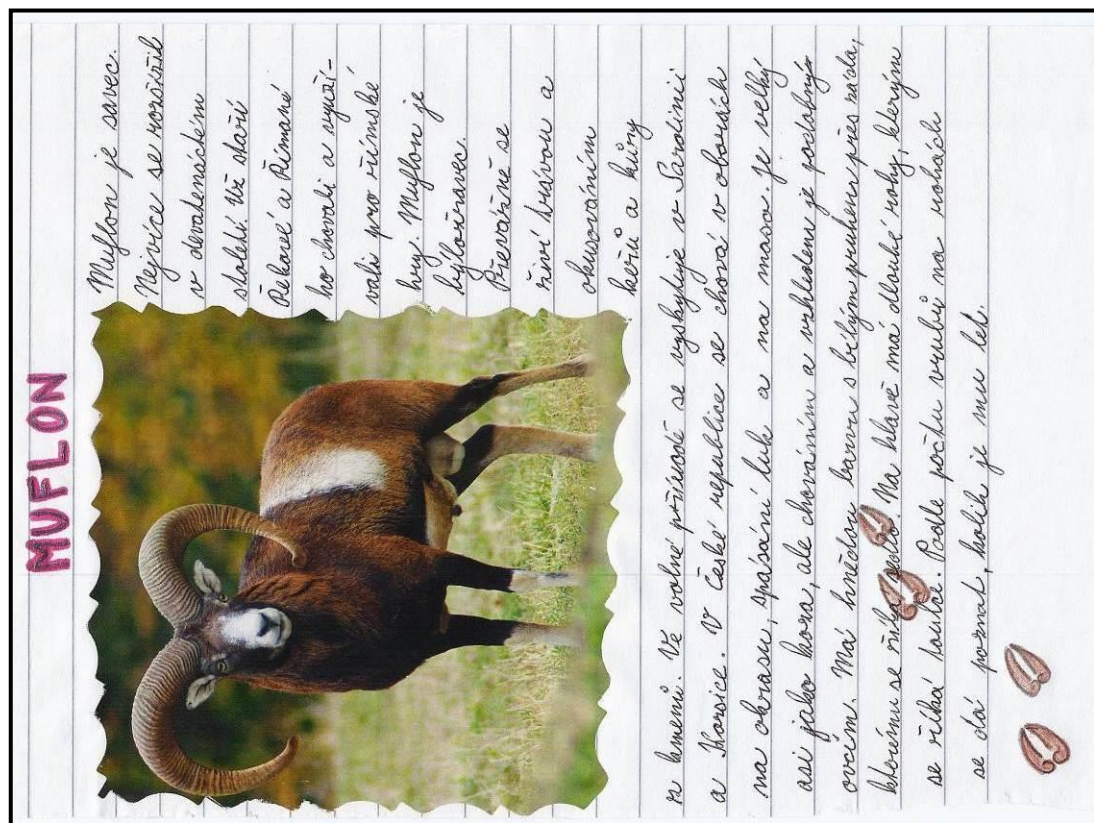 MUFLON
Muflon je savec.
Nejvíce se rozšířil
v devatenáctém
století. Už staří
Řekové a Římané
ho chovali a využí-
vali pro římské
hry. Muflon je
býložravec.
Převážně se
živí trávou a
okusováním
keřů a kůry
z kmenů. Ve volné přírodě se vyskytuje v Sardinii
a Korsice. V České republice se chová v oborách
na okrasu, spásání luk a na maso. Je velký
asi jako koza, ale chováním a vzhledem je podobným
ovcím. Má hnědou barvu s bílým pruhem přes záda,
kterému se říká sedlo. Na hlavě má dlouhé rohy, kterým
se říká toulce. Podle počtu vrubů na rohách
se dá poznat, kolik je mu let.